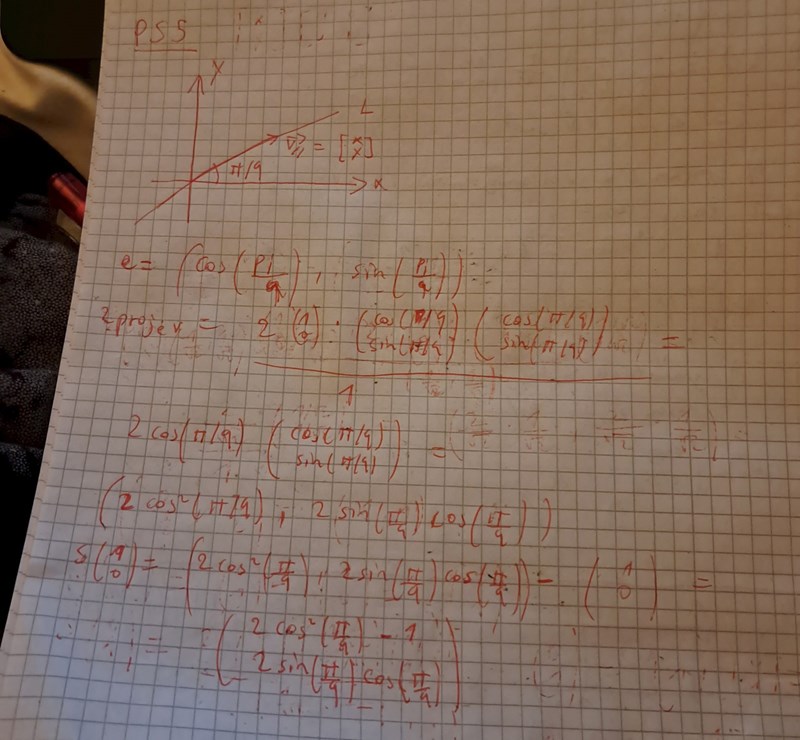 PSS
y
L
v = [x y]
π/9
x
e = (cos(Pi/9), sin(Pi/9))
2 proj e v = 2 (1 0) · (cos(π/9) sin(π/9)) (cos(π/9) sin(π/9)) =
1
2 cos(π/9) (cos(π/9) sin(π/9)) =
(2 cos²(π/9), 2 sin(π/9) cos(π/9))
S(1 0) = (2cos²(π/9), 2sin(π/9) cos(π/9)) - (1 0) =
= (2 cos²(π/9) - 1 2 sin(π/9) cos(π/9))